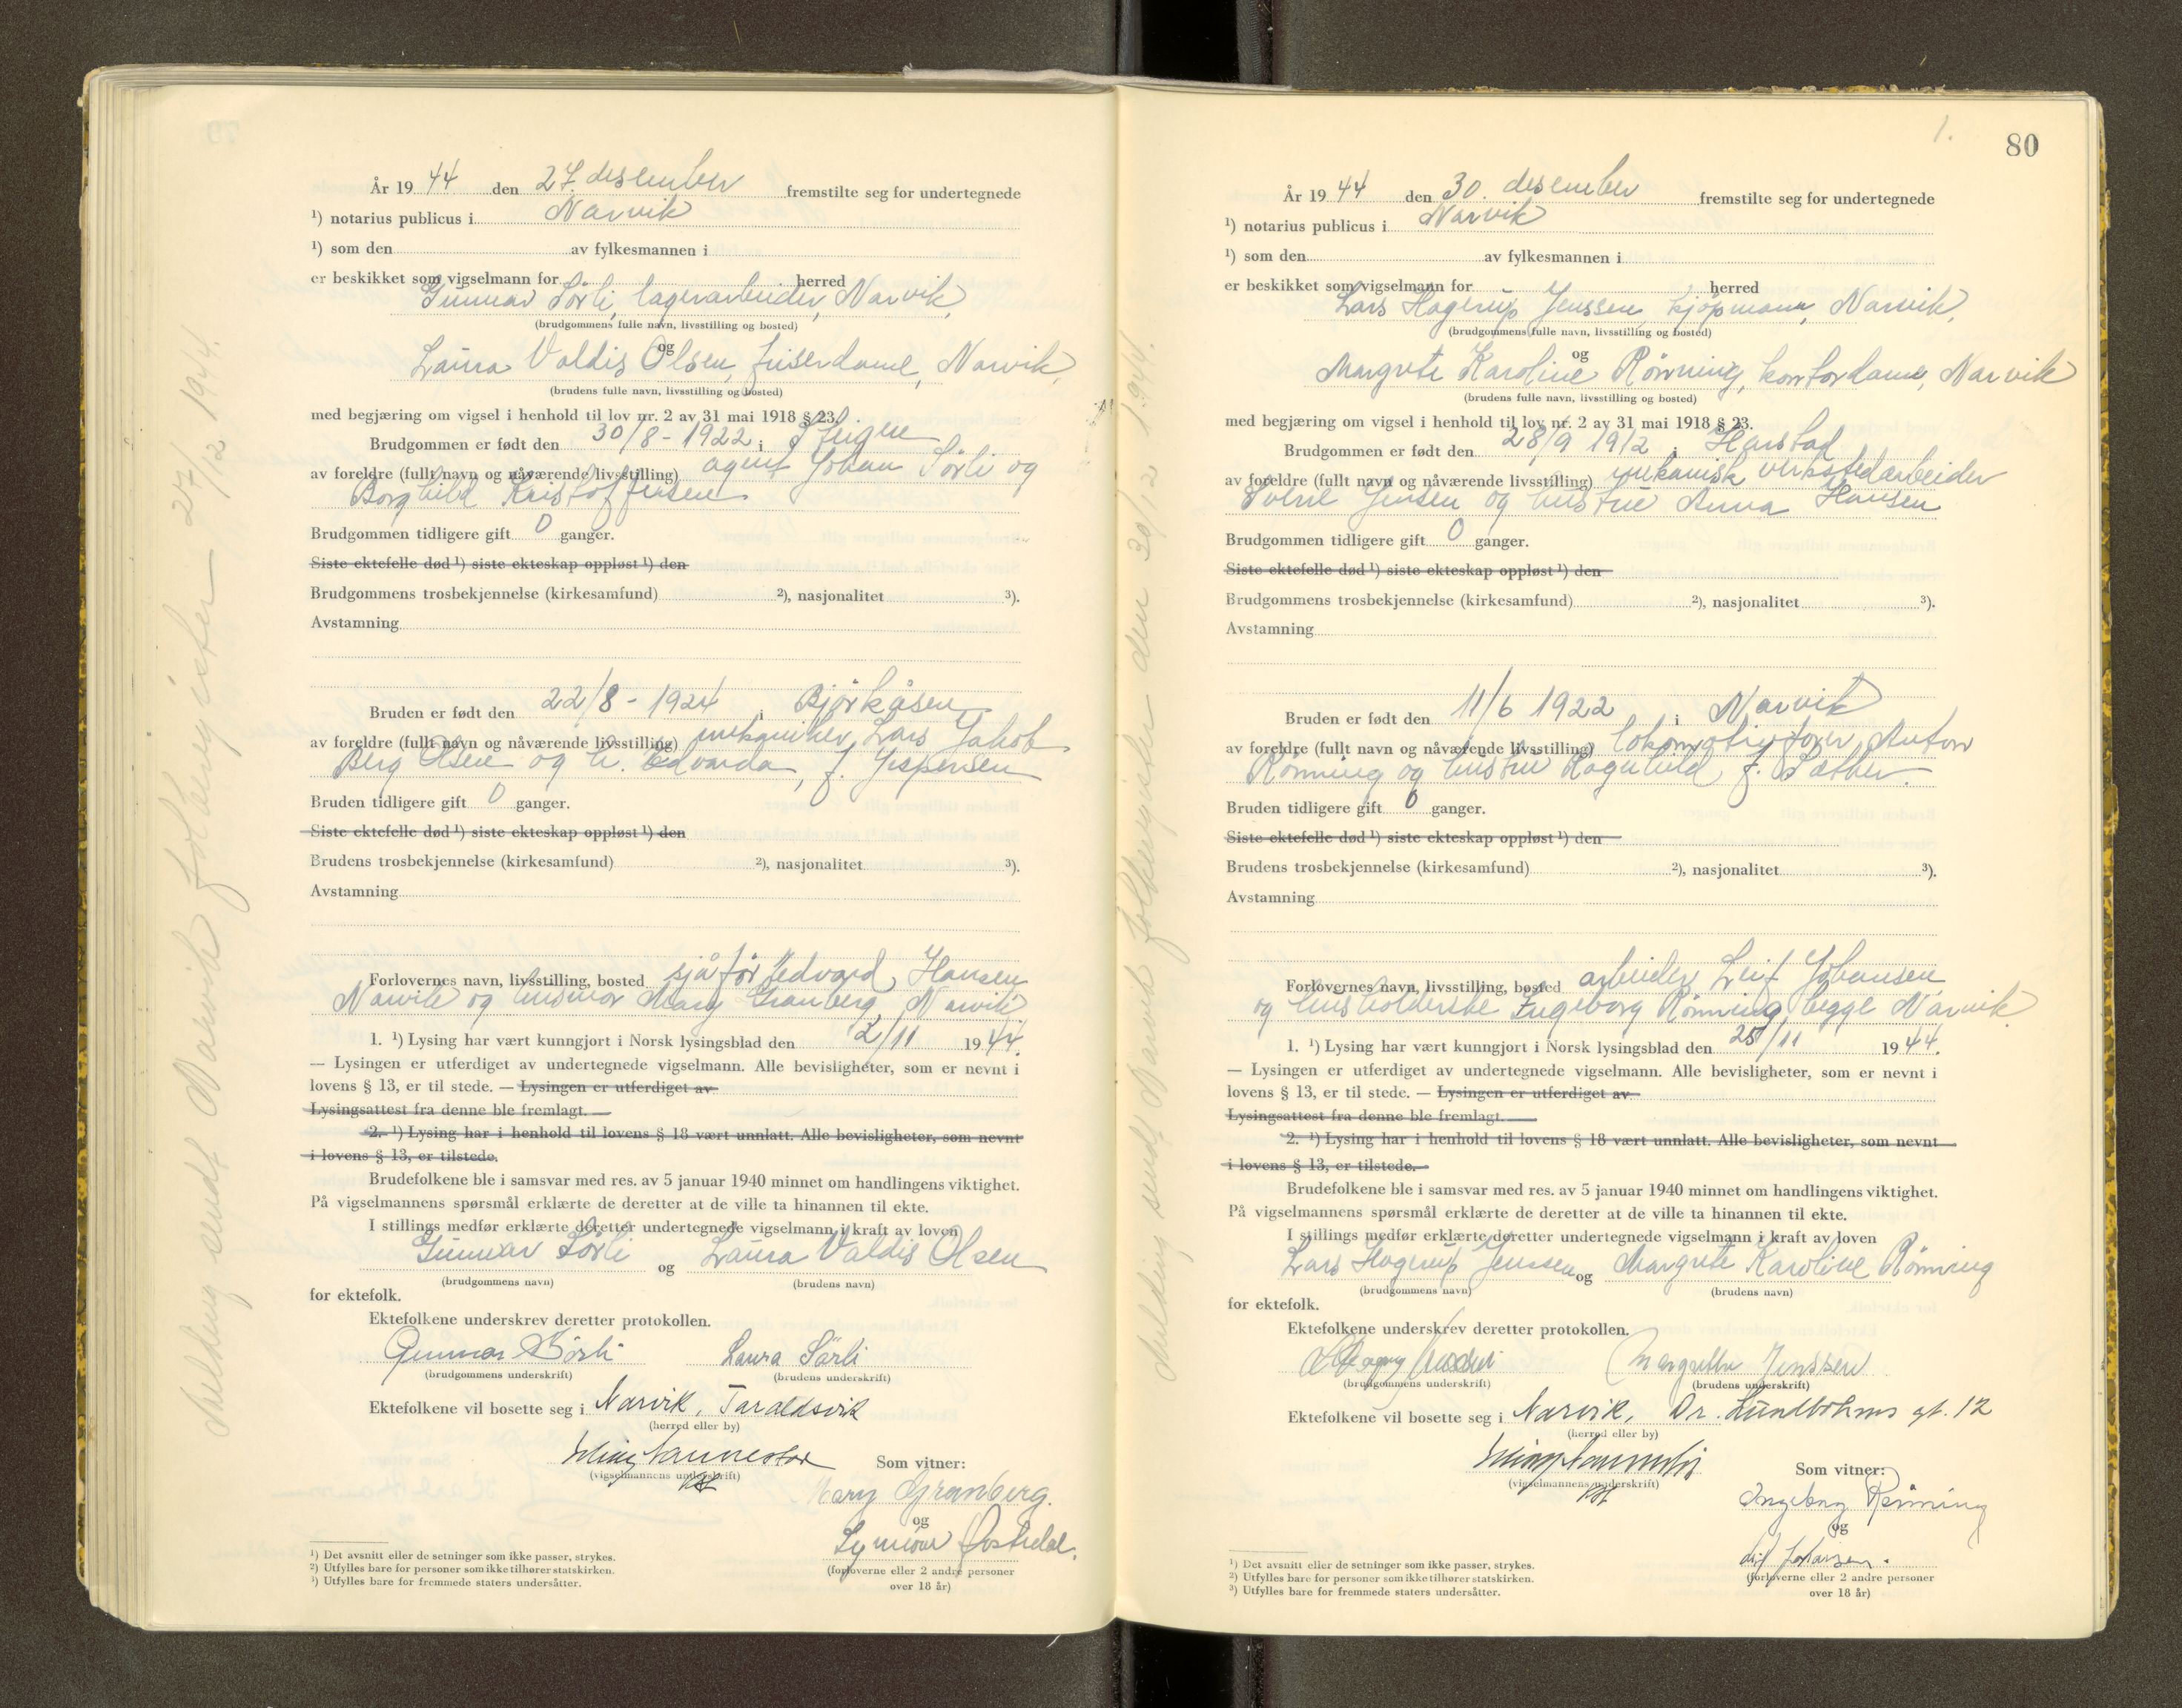 År 19 44 den 27. desember fremstilte seg for undertegnede
¹) notarius publicus i Narvik
¹) som den av fylkesmannen i
er beskikket som vigselmann for herred
Gunnar Sörli, lagerarbeider, Narvik,
(brudgommens fulle navn, livsstilling og bosted)
og
Laura Valdis Olsen, friserdame, Narvik,
(brudens fulle navn, livsstilling og bosted)
med begjæring om vigsel i henhold til lov nr. 2 av 31 mai 1918 § 23.
Brudgommen er født den 30/8 - 1922 i Steigen
av foreldre (fullt navn og nåværende livsstilling) agent Johan Sörli og
Borghild Kristoffersen
Brudgommen tidligere gift 0 ganger.
Siste ektefelle død ¹) siste ekteskap oppløst ¹) den
Brudgommens trosbekjennelse (kirkesamfund) ²), nasjonalitet ³).
Avstamning
Bruden er født den 22/8 - 1924 i Bjørkåsen
av foreldre (fullt navn og nåværende livsstilling) mekaniker Lars Jakob
Berg Olsen og h. Edvarda, f. Jespersen
Bruden tidligere gift 0 ganger.
Siste ektefelle død ¹) siste ekteskap oppløst ¹) den
Brudens trosbekjennelse (kirkesamfund) ²), nasjonalitet ³).
Avstamning
Forlovernes navn, livsstilling, bosted sjåför Hedvard Hansen
Narvik og husmor Mary Granberg, Narvik
1. ¹) Lysing har vært kunngjort i Norsk lysingsblad den 2/11 19 44.
— Lysingen er utferdiget av undertegnede vigselmann. Alle bevisligheter, som er nevnt i
lovens § 13, er til stede. — Lysingen er utferdiget av
Lysingsattest fra denne ble fremlagt.
2. ¹) Lysing har i henhold til lovens § 18 vært unnlatt. Alle bevisligheter, som nevnt
i lovens § 13, er tilstede.
Brudefolkene ble i samsvar med res. av 5 januar 1940 minnet om handlingens viktighet.
På vigselmannens spørsmål erklærte de deretter at de ville ta hinannen til ekte.
I stillings medfør erklærte deretter undertegnede vigselmann i kraft av loven
Gunnar Sörli og Laura Valdis Olsen
(brudgommens navn) (brudens navn)
for ektefolk.
Ektefolkene underskrev deretter protokollen.
Gunnar Sörli Laura Sørli
(brudgommens underskrift) (brudens underskrift)
Ektefolkene vil bosette seg i Narvik, Taraldsvik
(herred eller by)
(vigselmannens underskrift)
Som vitner:
Mary Granberg.
og
(forloverne eller 2 andre personer
over 18 år)
¹) Det avsnitt eller de setninger som ikke passer, strykes.
²) Utfylles bare for personer som ikke tilhører statskirken.
³) Utfylles bare for fremmede staters undersåtter.
Melding sendt Narvik folkeregister 27/12 1944.
1.
80
År 19 44 den 30. desember fremstilte seg for undertegnede
¹) notarius publicus i Narvik
¹) som den av fylkesmannen i
er beskikket som vigselmann for herred
Lars Hagerup Jenssen, kjøpmann, Narvik,
(brudgommens fulle navn, livsstilling og bosted)
og
Margrete Karoline Rönning, kontordame, Narvik
(brudens fulle navn, livsstilling og bosted)
med begjæring om vigsel i henhold til lov nr. 2 av 31 mai 1918 § 23.
Brudgommen er født den 28/9 1912 i Harstad
av foreldre (fullt navn og nåværende livsstilling) mekanisk verkstedarbeider
Sverre Jensen og hustru Anna Hansen
Brudgommen tidligere gift 0 ganger.
Siste ektefelle død ¹) siste ekteskap oppløst ¹) den
Brudgommens trosbekjennelse (kirkesamfund) ²), nasjonalitet ³).
Avstamning
Bruden er født den 11/6 1922 i Narvik
av foreldre (fullt navn og nåværende livsstilling) lokomotivfører Anton
Rönning og hustru Ragnhild f. Sæther.
Bruden tidligere gift 0 ganger.
Siste ektefelle død ¹) siste ekteskap oppløst ¹) den
Brudens trosbekjennelse (kirkesamfund) ²), nasjonalitet ³).
Avstamning
Forlovernes navn, livsstilling, bosted arbeider Leif Johansen
og husholderske Ingeborg Rönning, begge Narvik
1. ¹) Lysing har vært kunngjort i Norsk lysingsblad den 25/11 19 44.
— Lysingen er utferdiget av undertegnede vigselmann. Alle bevisligheter, som er nevnt i
lovens § 13, er til stede. — Lysingen er utferdiget av
Lysingsattest fra denne ble fremlagt.
2. ¹) Lysing har i henhold til lovens § 18 vært unnlatt. Alle bevisligheter, som nevnt
i lovens § 13, er tilstede.
Brudefolkene ble i samsvar med res. av 5 januar 1940 minnet om handlingens viktighet.
På vigselmannens spørsmål erklærte de deretter at de ville ta hinannen til ekte.
I stillings medfør erklærte deretter undertegnede vigselmann i kraft av loven
Lars Hagerup Jenssen og Margrete Karoline Rönning
(brudgommens navn) (brudens navn)
for ektefolk.
Ektefolkene underskrev deretter protokollen.
Margrethe Jenssen
(brudgommens underskrift) (brudens underskrift)
Ektefolkene vil bosette seg i Narvik, Dr. Lundbohms gt. 12
(herred eller by)
(vigselmannens underskrift)
Som vitner:
Ingeborg Rönning
og
Leif Johansen.
(forloverne eller 2 andre personer
over 18 år)
¹) Det avsnitt eller de setninger som ikke passer, strykes.
²) Utfylles bare for personer som ikke tilhører statskirken.
³) Utfylles bare for fremmede staters undersåtter.
Melding sendt Narvik folkeregister den 30/12 1944.